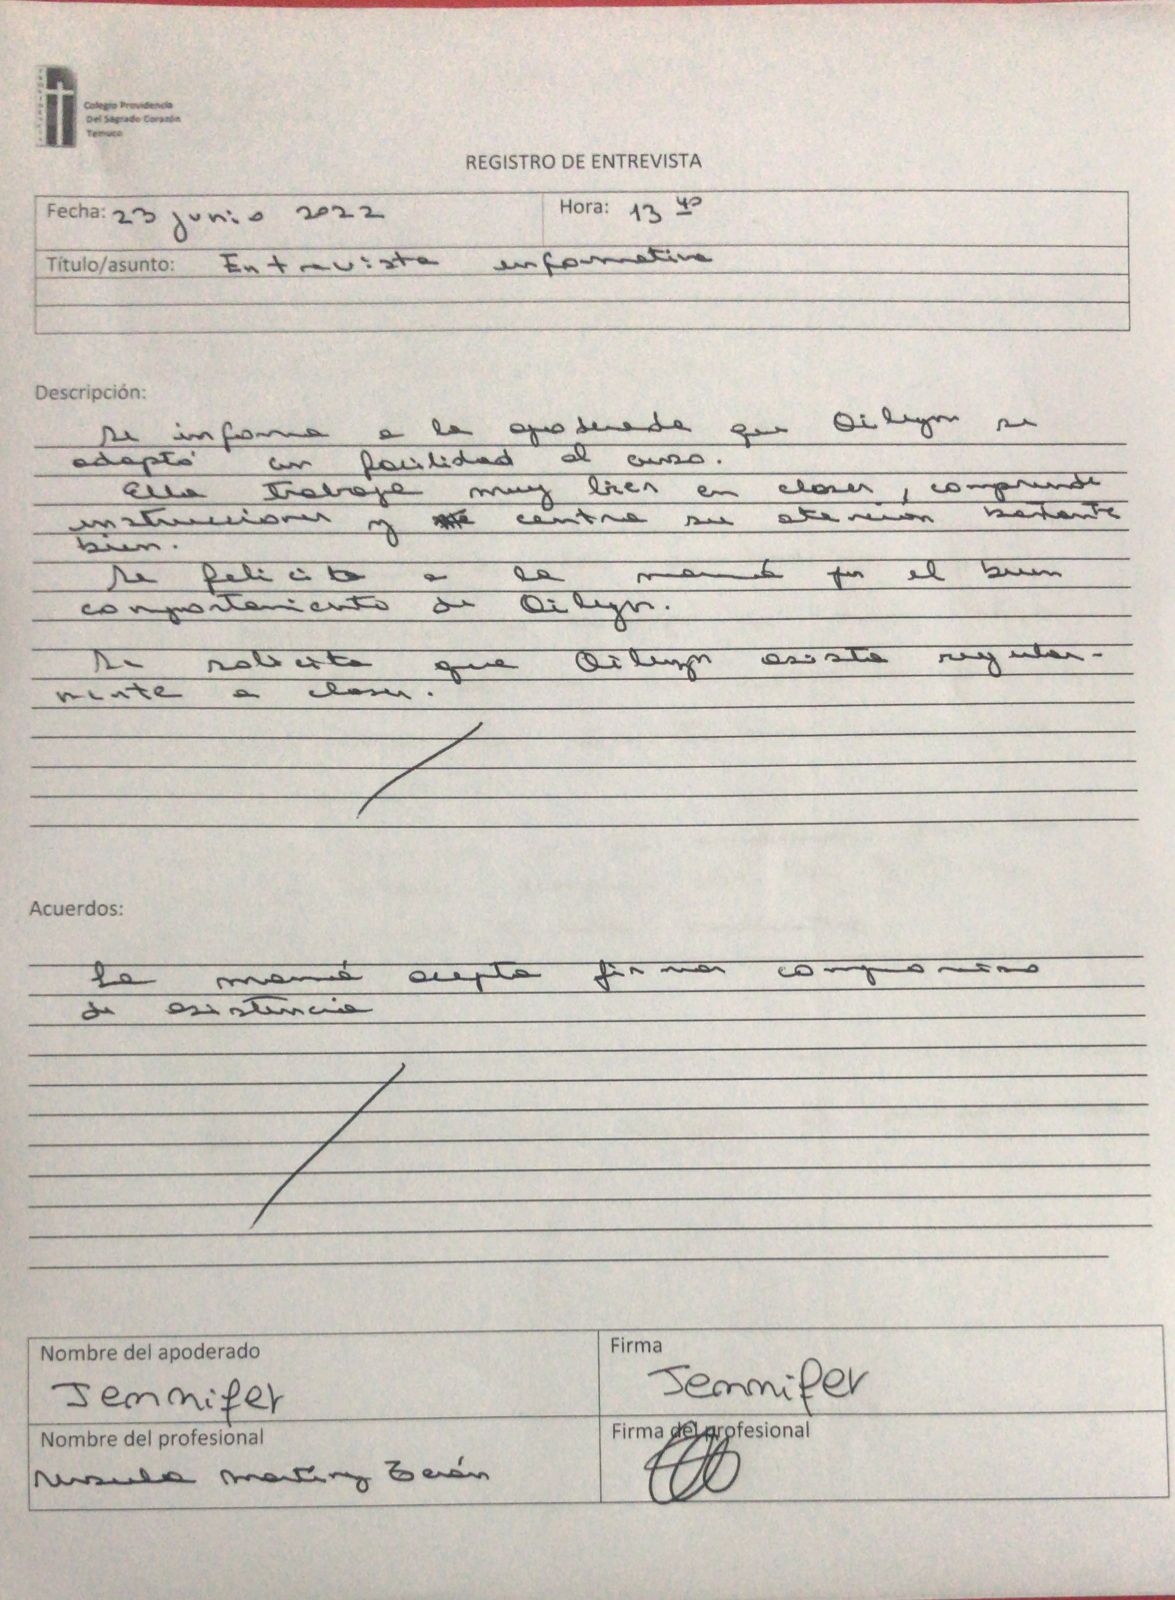 Colegio Providencia
Del Sagrado Corazón
Temuco
REGISTRO DE ENTREVISTA
Fecha: 23 junio 2022 Hora: 13 40
Título/asunto: Entrevista informativa
Descripción:
Se informa a la apoderada que Oilyn se
adaptó con facilidad al curso.
Ella trabaja muy bien en clases, comprende
instrucciones y centra su atención bastante
bien.
Se felicita a la mamá por el buen
comportamiento de Oilyn.
Se solicita que Oilyn asista regular-
mente a clases.
Acuerdos:
La mamá acepta firmar compromiso
de asistencia
Nombre del apoderado Firma
Jennifer Jennifer
Nombre del profesional Firma del profesional
Ursula